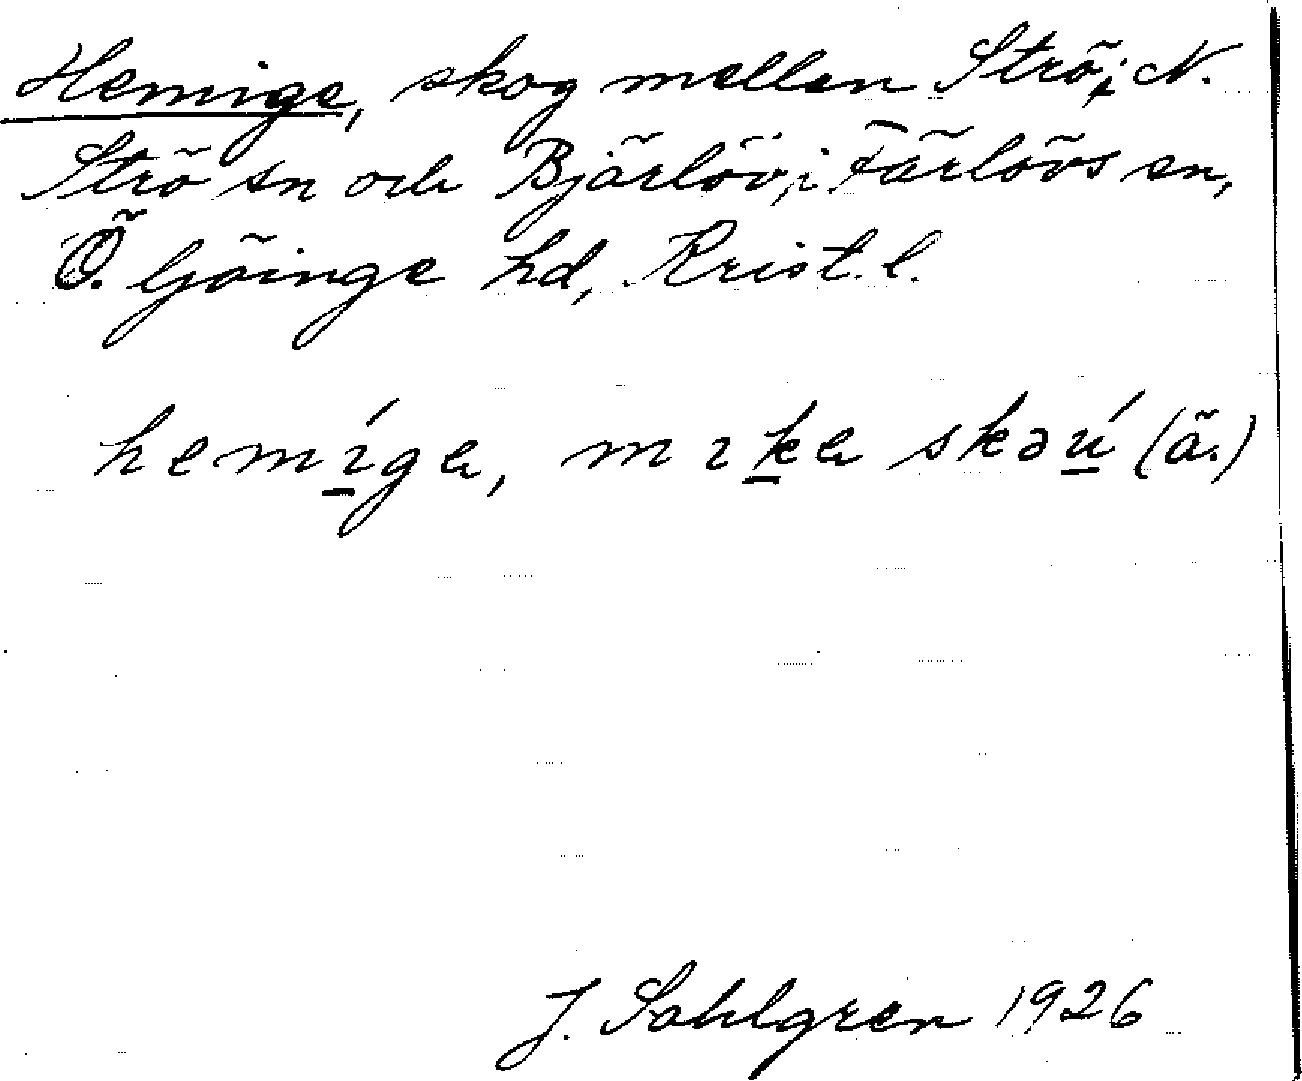 Hemige, skog mellan Strö i N.
Strö sn och Bjärlöv, i Färlövs sn,
Ö. Göinge hd, Krist. l.
hemíga, mıka skəú (ä.)
J. Sahlgren 1926